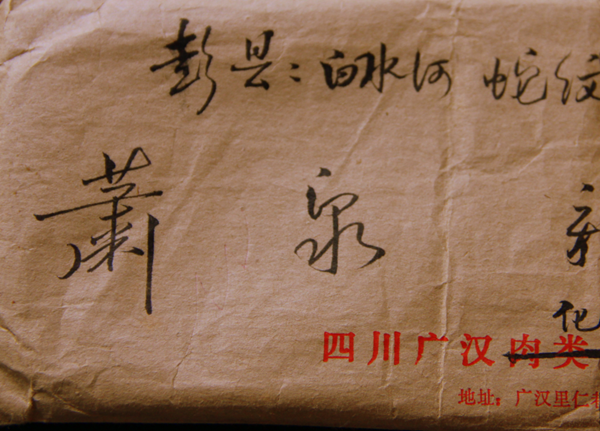 彭县：白水河 蛇纹
萧 泉
化
四川广汉肉类
地址：广汉里仁